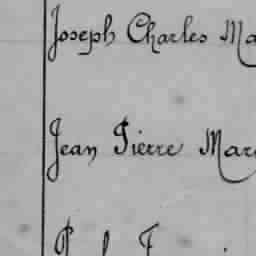 Joseph Charles Ma
Jean Pierre Mar